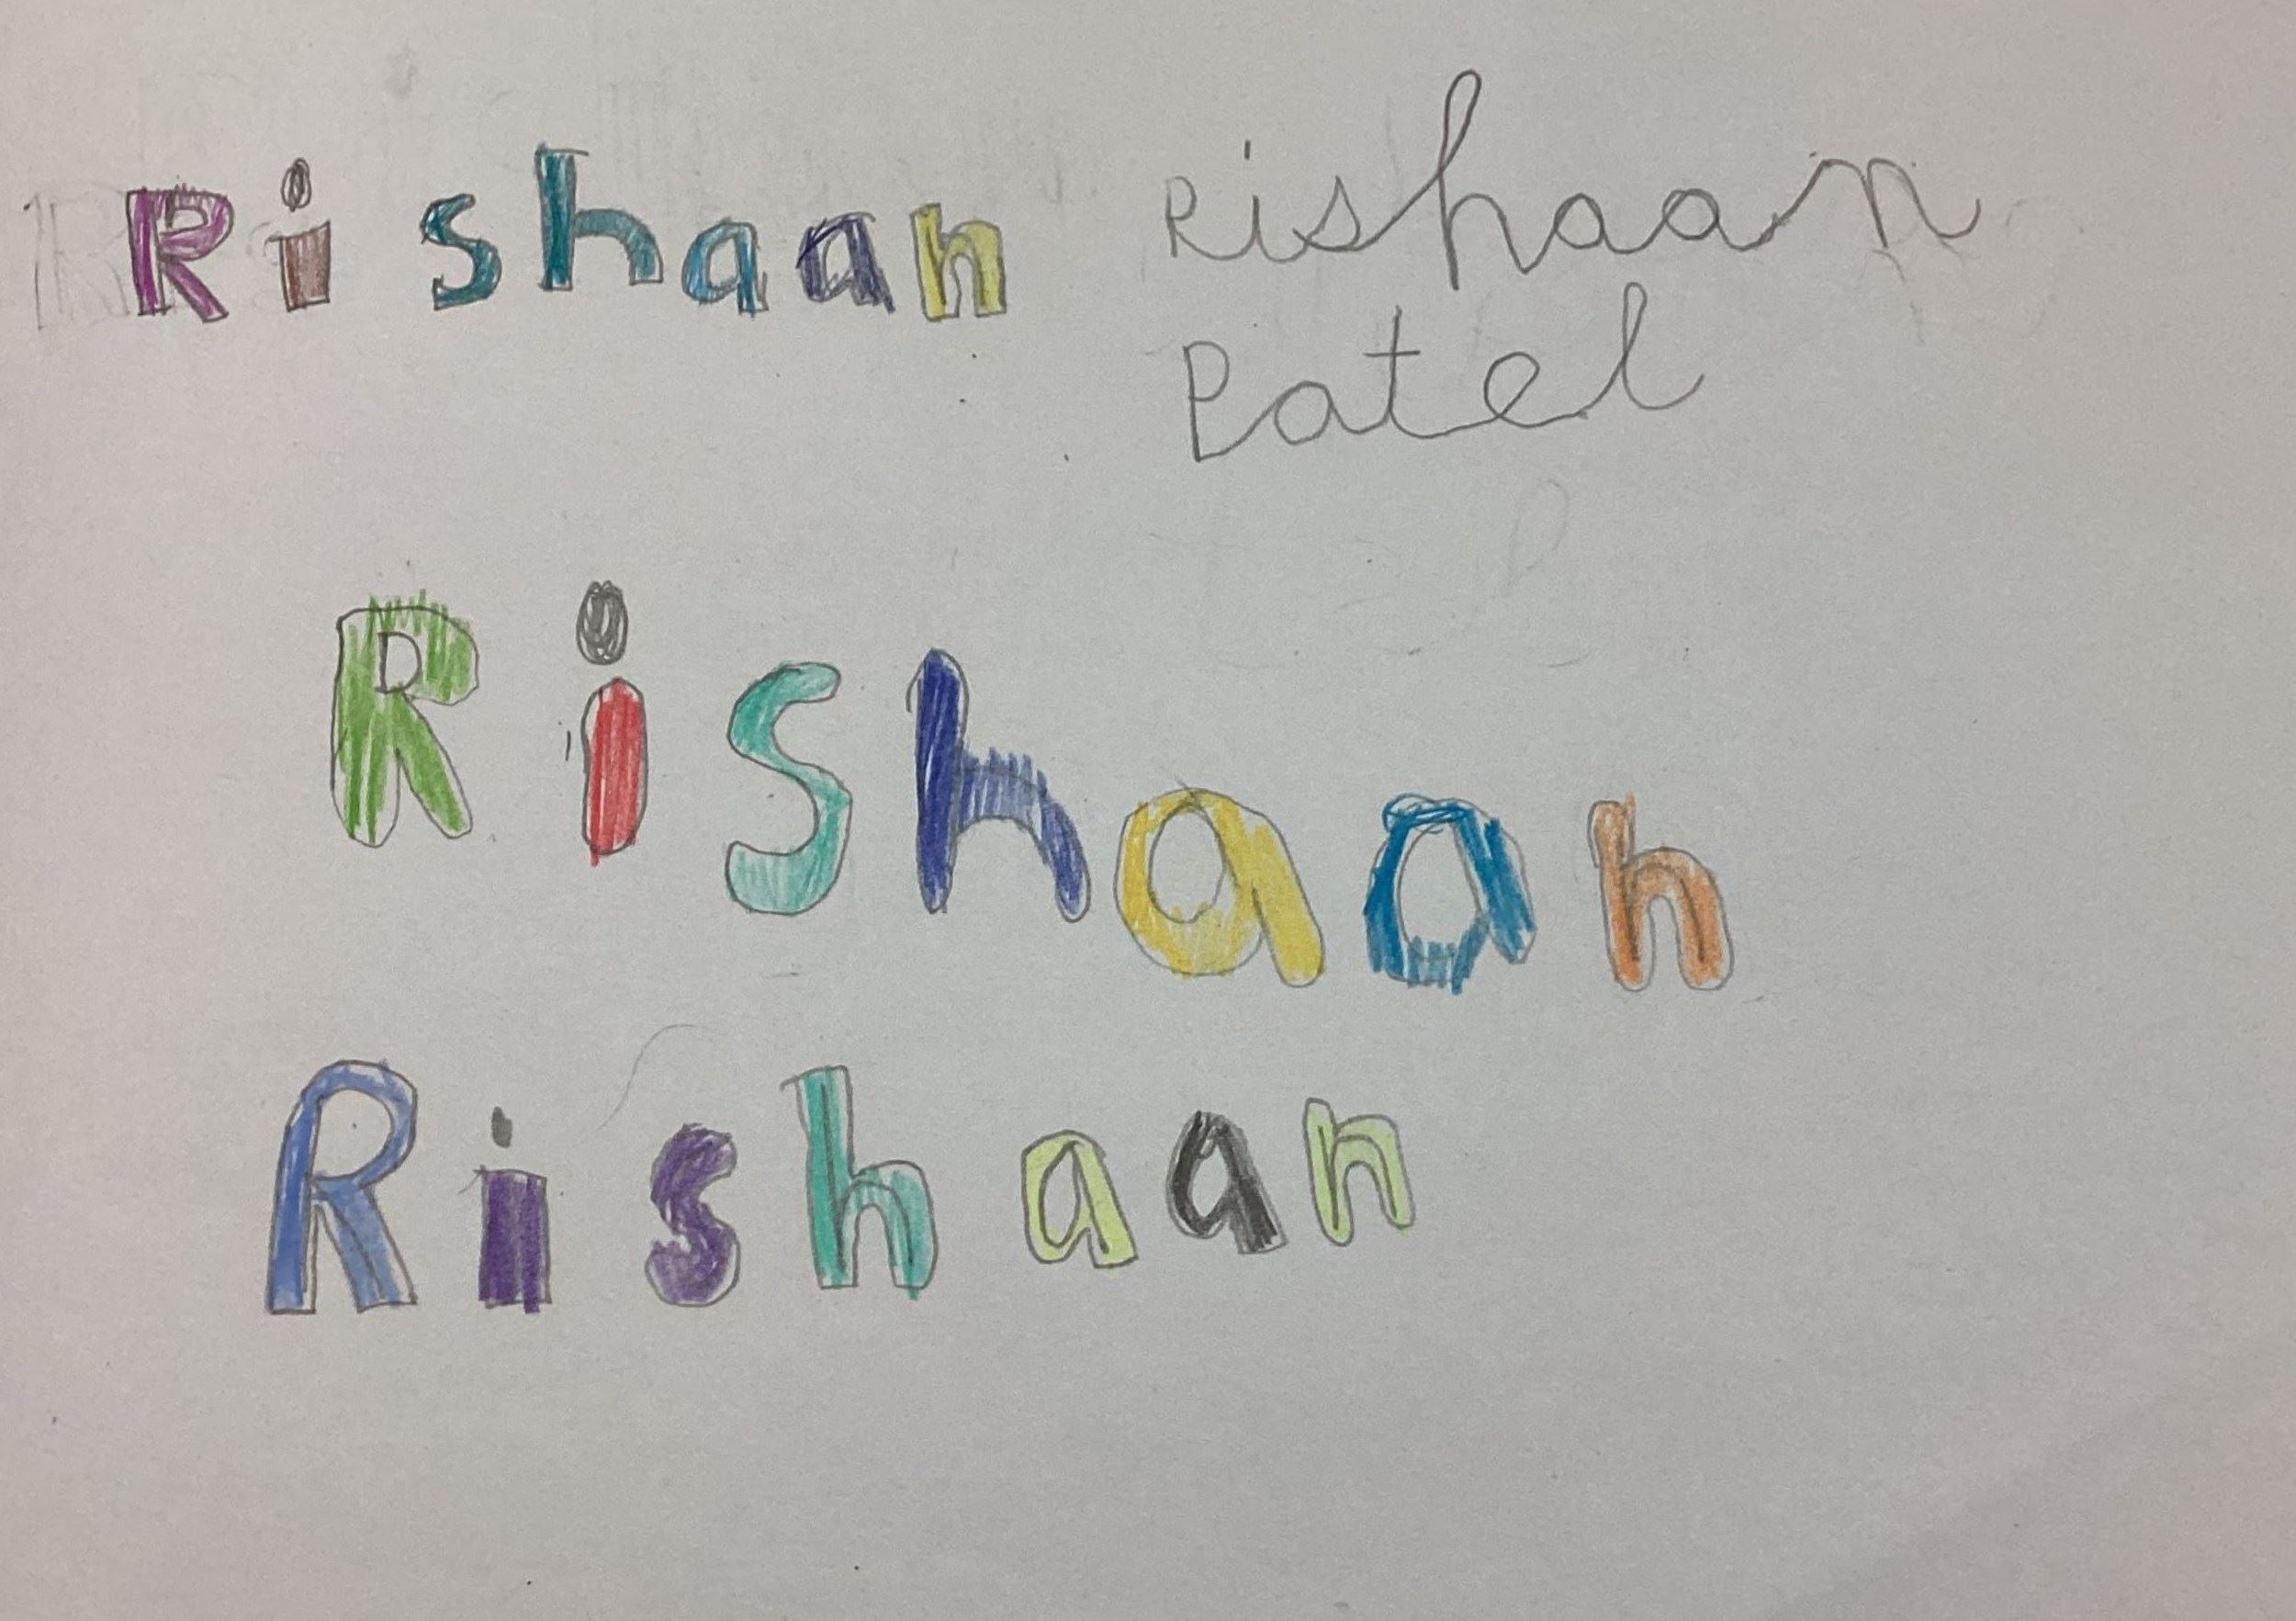 Rishaan Rishaan
Patel
Rishaan
Rishaan